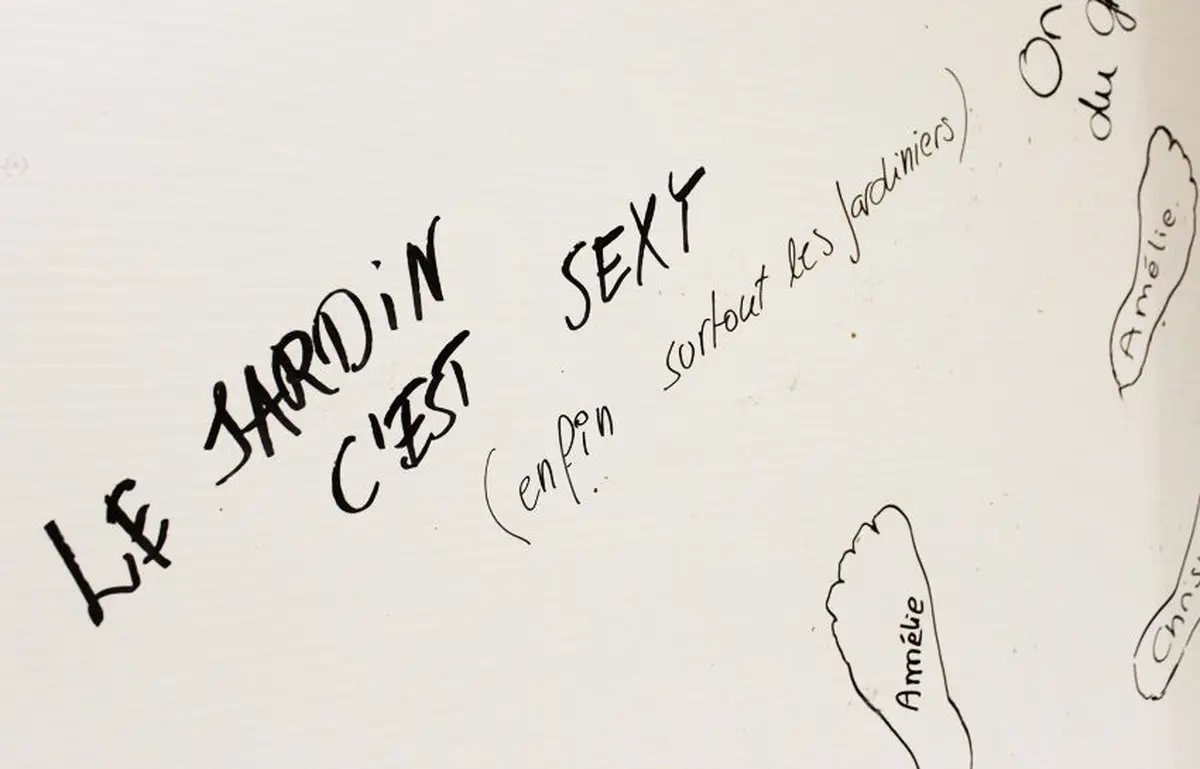 LE JARDiN
C'EST SEXY
(enfin surtout les Jardiniers)
On
du
Amélie
Amélie